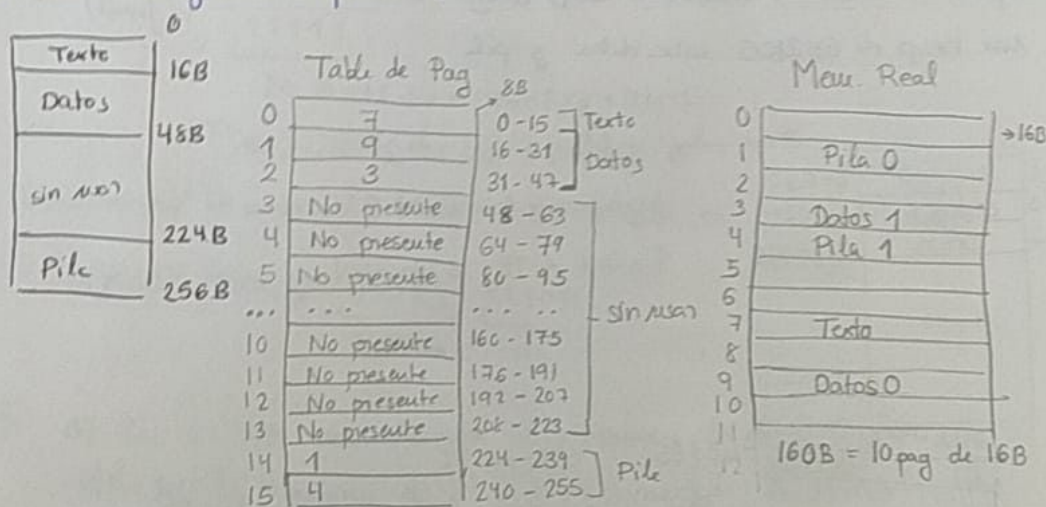 0
Texto
16B
Datos
48B
sin usar
224B
Pila
256B
Tabla de Pag
8B
0 7 0-15 Texto
1 9 16-31 Datos
2 3 31-47
3 No presente 48-63
4 No presente 64-79
5 No presente 80-95
... .... .... ..
sin usar
10 No presente 160-175
11 No presente 176-191
12 No presente 192-207
13 No presente 208-223
14 1 224-239 Pila
15 4 240-255
Mem. Real
0 →16B
1 Pila 0
2
3 Datos 1
4 Pila 1
5
6
7 Texto
8
9 Datos 0
10
11
12
160B = 10 pag de 16B